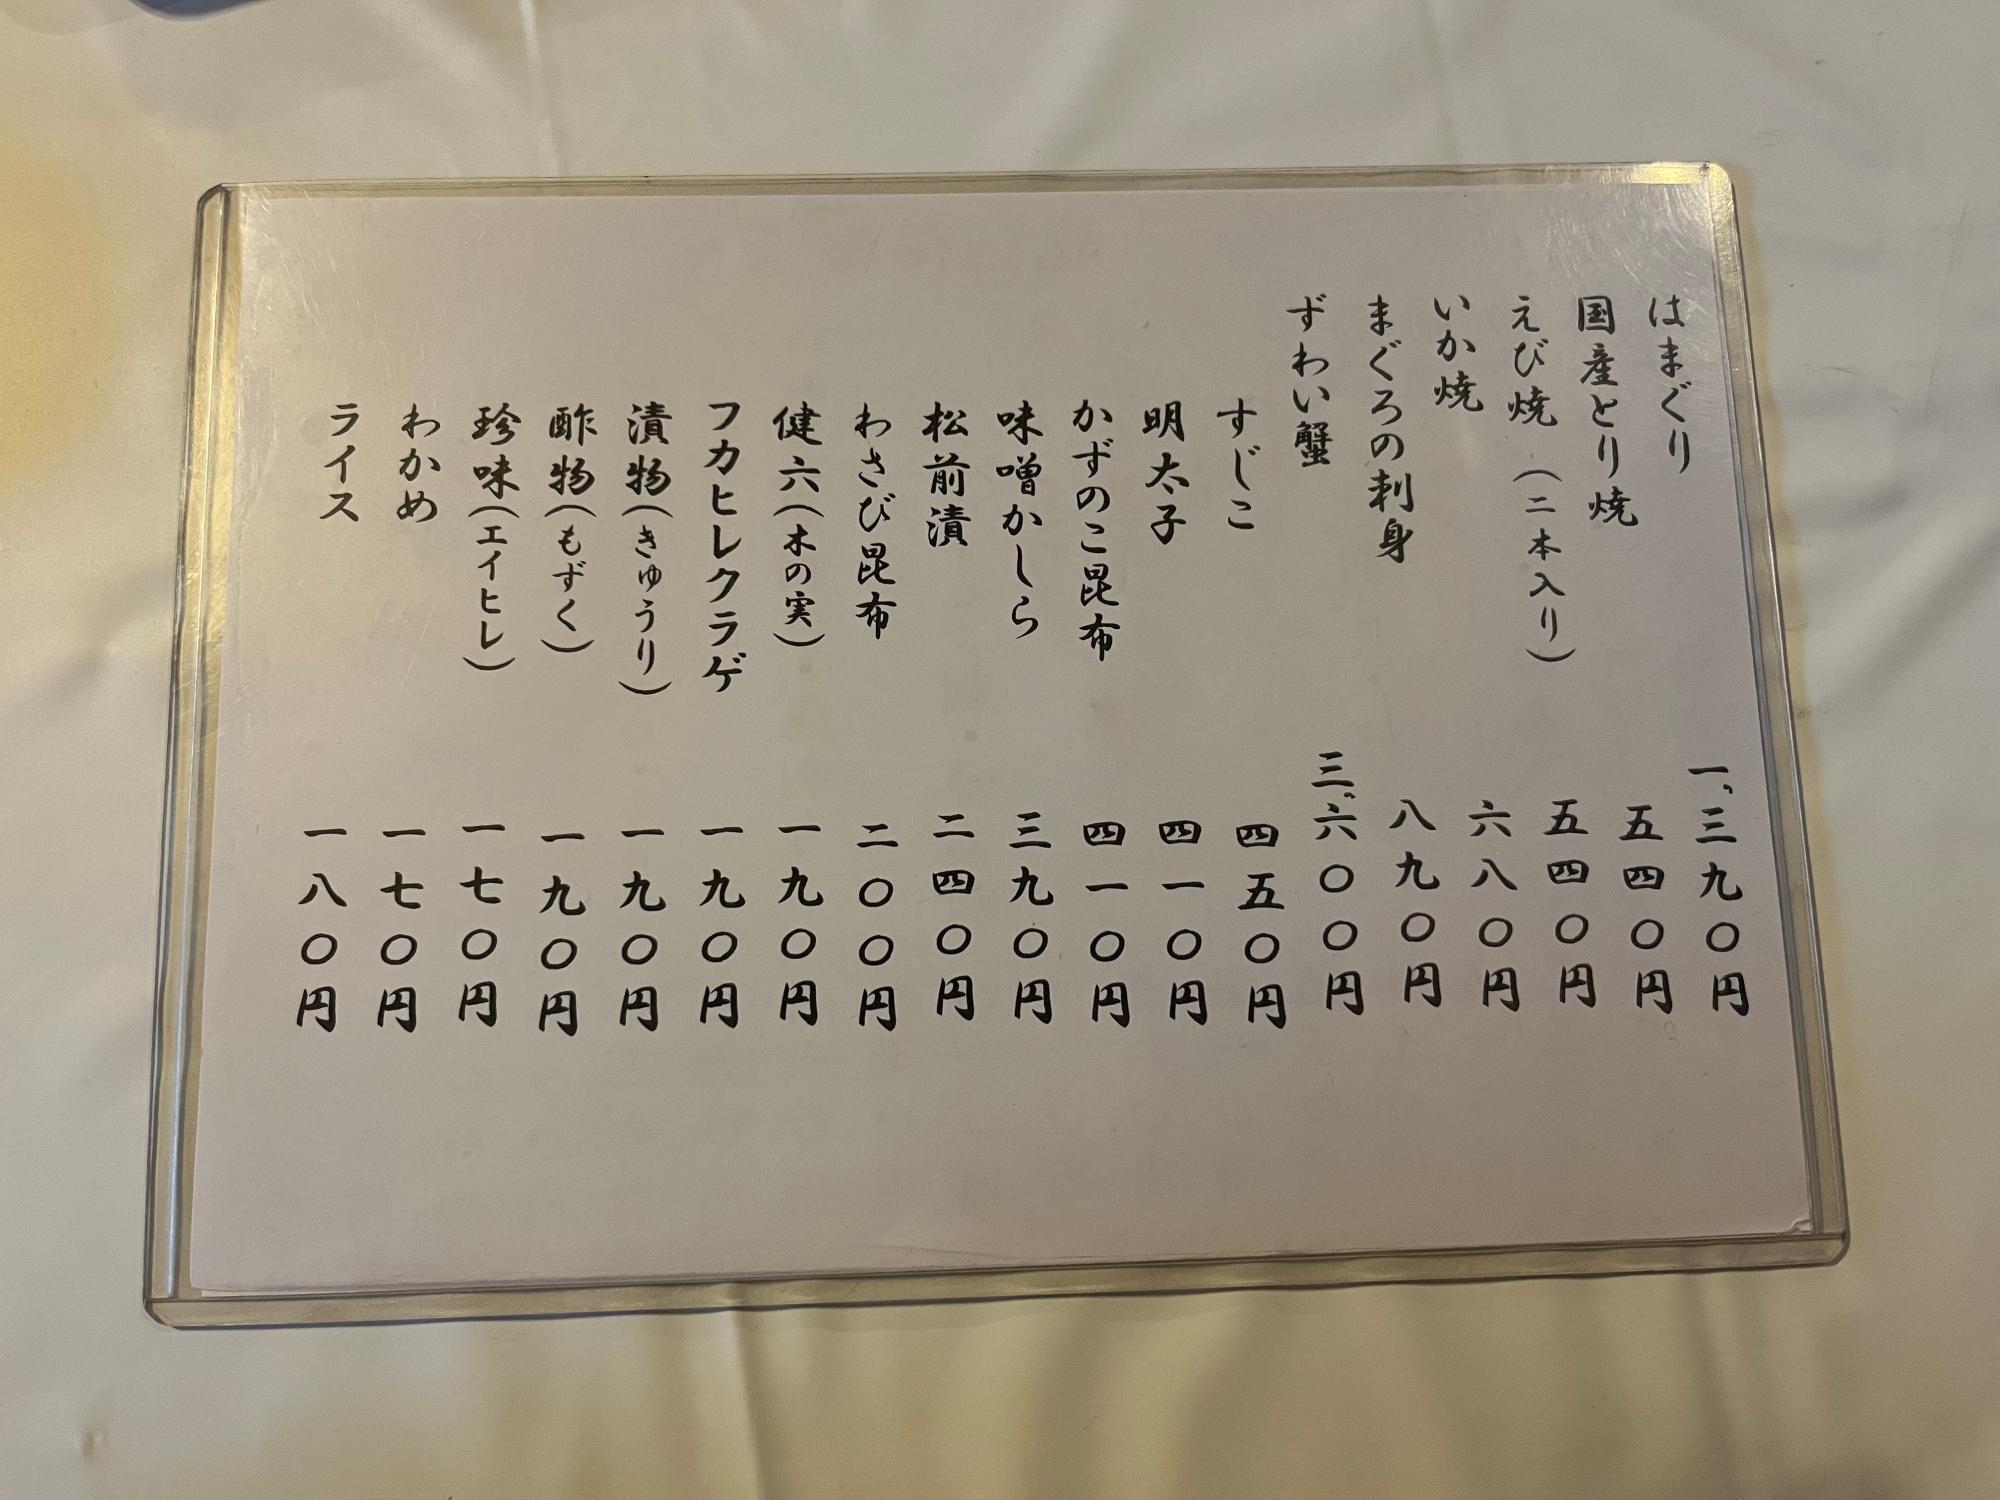 はまぐり 一、三九〇円
国産とり焼 五四〇円
えび焼(二本入り) 五四〇円
いか焼 六八〇円
まぐろの刺身 八九〇円
ずわい蟹 三、六〇〇円
すじこ 四五〇円
明太子 四一〇円
かずのこ昆布 四一〇円
味噌かしら 三九〇円
松前漬 二四〇円
わさび昆布 二〇〇円
健六(木の実) 一九〇円
フカヒレクラゲ 一九〇円
漬物(きゅうり) 一九〇円
酢物(もずく) 一九〇円
珍味(エイヒレ) 一七〇円
わかめ 一七〇円
ライス 一八〇円